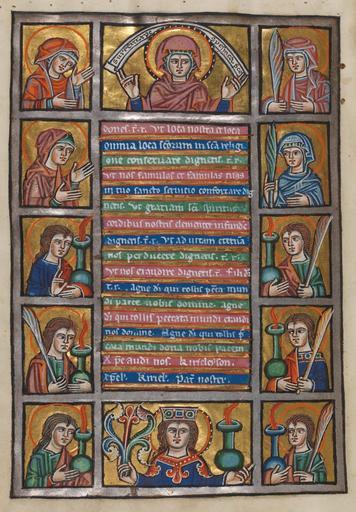 dones. t. r. Ut loca nostra et loca
omnia loca scorum in scā religi
one conseruare digneris. t. r.
ut nos famulos et famulas tuas
in tuo sancto seruitio confortare dig
neris. Ut gratiam sci spiritus
cordibus nostris clementer infunde
digneris. t. r. Ut ad uitam eterna
nos perducere digneris. t. r.
ut nos exaudire digneris. t. Fili dei
t. r. agne dei qui tollis pcca mun
di parce nobis domine. Agne
di qui tollis peccata mundi exaudi
nos domine. Agne di qui tollis p
cata mundi dona nobis pacem
X pe audi nos. Kirieleyson.
Kiriel. Pat noster.